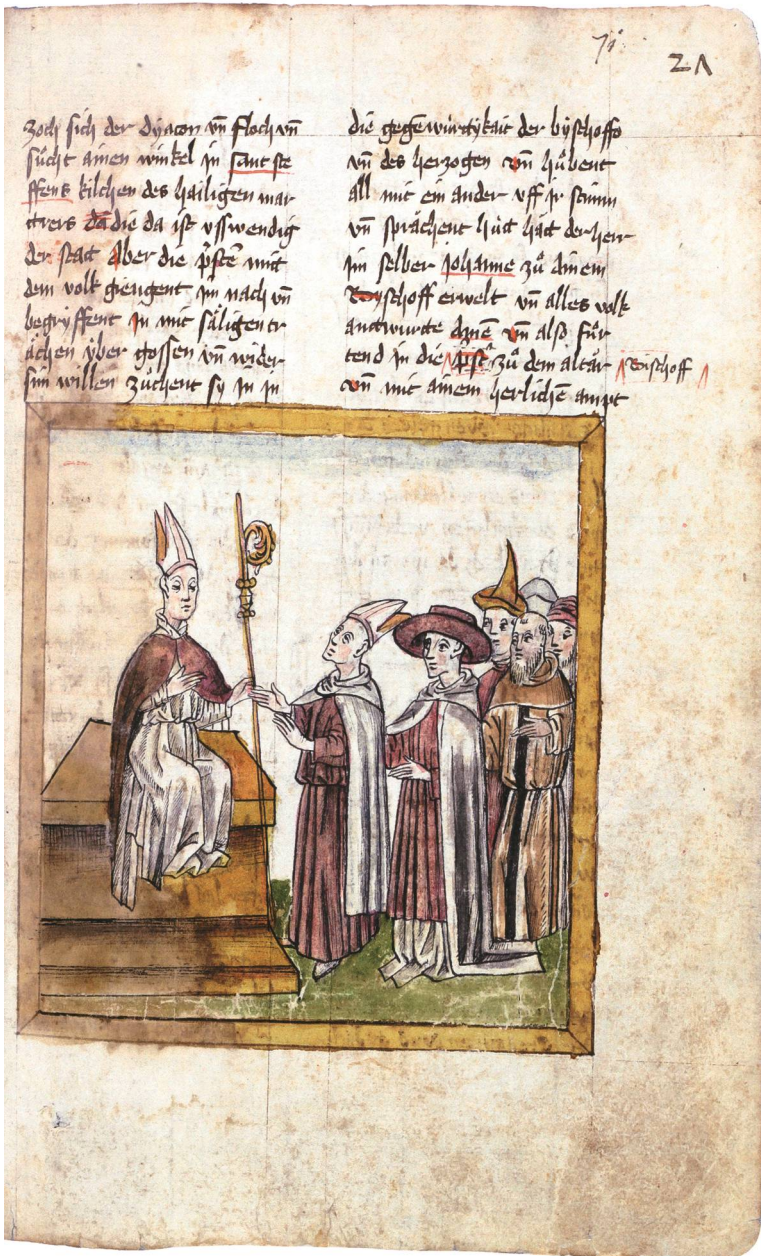 71
21
zoch sich der dyacon vn̄ floch vn̄
sücht ainen winkel in sant ste
ffens kilchen des hailigen mar
trers da die da ist vsswendig
der stat Aber die p̄ste mit
dem volk giengent im nach vn̄
begryffent in mit säligen tr
ächen ÿber gossen vn̄ wider
sin willen zůchent sy in in
die gegewürtykait der byschoffe
vn̄ des herzogen vn̄ hůbent
all mit ein ander vff ir stimm
vn̄ sprächent hüt hät der herr
im selber johanne zů ainem
Byschoff erwelt vn̄ alles volk
antwurte amē vn̄ also für
tend in die p̄st zů dem altär Bischoff
vn̄ mit ainem herlichē ampt